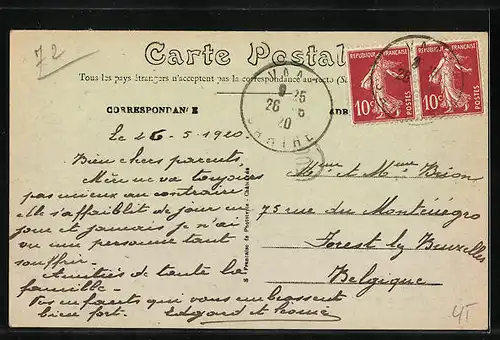 72
Carte Postale
Tous les pays étrangers n'acceptent pas la correspondance au recto
CORRESPONDANCE
REPUBLIQUE FRANÇAISE
10c POSTES
REPUBLIQUE FRANÇAISE
10c POSTES
VAA
9 25
26 5
20
SARTHE
Le 26-5-1920.
Bien chers parents,
Mère ne va toujours
pas mieux au contraire
elle s'affaiblit de jour en
jour et jamais je n'ai
vu une personne tant
souffrir.
Amitiés de toute la
famille.
Vos enfants qui vous embrassent
bien fort. Edgard et
Mme & Mme Brion
75 rue du Monténégro
Forest lez Bruxelles
Belgique